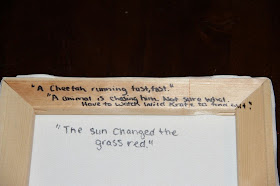 "A Cheetah running fast, fast."
"A ummal is chasing him. Not sure what.
Have to watch Wild Kratts to find out."
"The sun changed the
grass red."